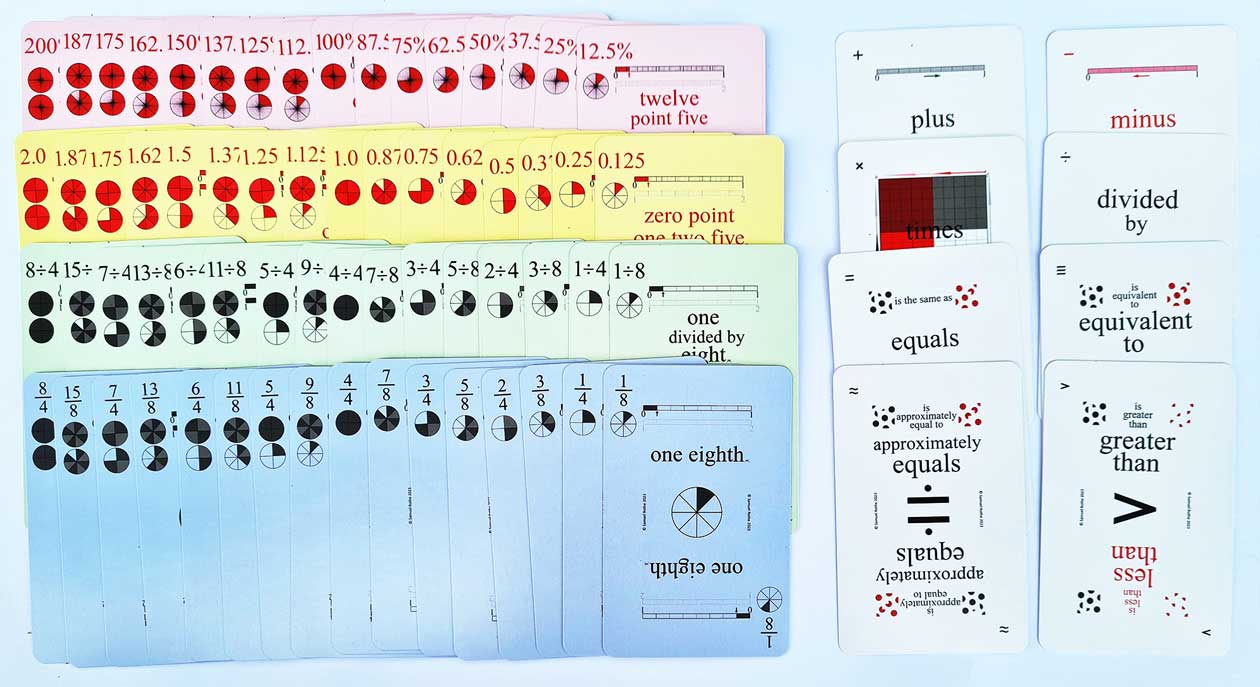 200 187 175 162. 150 137. 125 112. 100% 87.5 75% 62.5 50% 37.5 25% 12.5%
twelve
point five
2.0 1.87 1.75 1.62 1.5 1.37 1.25 1.125 1.0 0.87 0.75 0.62 0.5 0.3 0.25 0.125
zero point
one two five
8÷4 15÷ 7÷4 13÷8 6÷4 11÷8 5÷4 9÷ 4÷4 7÷8 3÷4 5÷8 2÷4 3÷8 1÷4 1÷8
one
divided by
eight
8/4 15/8 7/4 13/8 6/4 11/8 5/4 9/8 4/4 7/8 3/4 5/8 2/4 3/8 1/4 1/8
one eighth
© Samuel Rothe 2023
© Samuel Rothe 2023
one eighth
1/8
+
plus
−
minus
×
times
÷
divided
by
=
is the same as
equals
≡
is
equivalent
to
equivalent
to
≈
is
approximately
equal to
approximately
equals
© Samuel Rothe 2023
© Samuel Rothe 2023
equals
approximately
is
approximately
equal to
≈
>
is
greater
than
greater
than
>
© Samuel Rothe 2023
© Samuel Rothe 2023
less
than
is
less
than
<